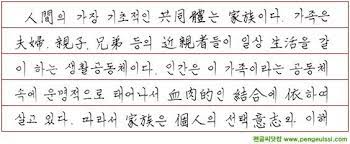 人間의 가장 기초적인 共同體는 家族이다. 가족은
夫婦. 親子. 兄弟 등의 近親者들이 일상 生活을 같
이 하는 생활공동체이다. 인간은 이 가족이라는 공동체
속에 운명적으로 태어나서 血肉的인 結合에 依하여
살고 있다. 따라서 家族은 個人의 선택 意志와 이해
펜글씨닷컴 www.pengeulssi.com